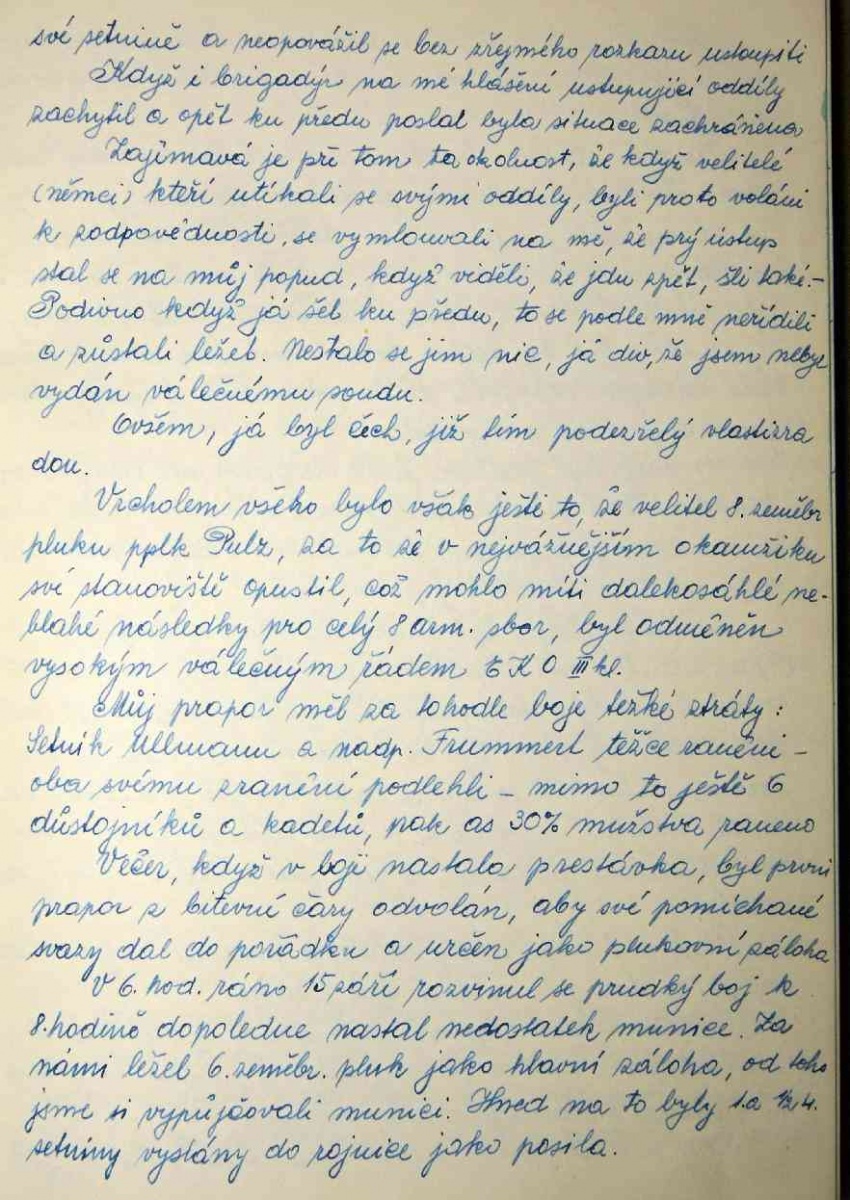 své setnině a neopovážil se bez zřejmého rozkazu ustoupiti
Když i brigadýr na mé hlášení ustupující oddíly
zachytil a opět ku předu poslal byla situace zachráněna
Zajímavá je při tom ta okolnost, že když velitelé
(němci) kteří utíkali se svými oddíly, byli proto voláni
k zodpovědnosti, se vymlouvali na mě, že prý ústup
stal se na můj popud, když viděli, že jdu zpět, šli také.-
Podivno když já šel ku předu, to se podle mně neřídili
a zůstali ležet. Nestalo se jim nic, já div, že jsem nebyl
vydán válečnému soudu.
Ovšem, já byl čech, již tím podezřelý vlastizra
dou.
Vrcholem všeho bylo však ještě to, že velitel 8. zeměbr
pluku pplk Pulz, za to že v nejvážnějším okamžiku
své stanoviště opustil, což mohlo míti dalekosáhlé ne-
blahé následky pro celý 8 arm. sbor, byl odměněn
vysokým válečným řádem E K O III kl.
Můj prapor měl za tohodle boje težké ztráty:
Setník Ullmann a nadp. Frummert těžce raněni -
oba svému zranění podlehli - mimo to ještě 6
důstojníků a kadetů, pak as 30% mužstva raneno
Večer, když v boji nastala prestávka, byl první
prapor z bitevní čáry odvolán, aby své pomíchané
svazy dal do pořádku a určen jako plukovní záloha
V 6. hod. ráno 15 září rozvinul se prudký boj k
8. hodině dopoledne nastal nedostatek munice. Za
námi ležel 6. zeměbr. pluk jako hlavní záloha, od toho
jsme si vypůjčovali munici. Hned na to byly 1. a 1/2 4.
setniny vyslány do rojnice jako posila.